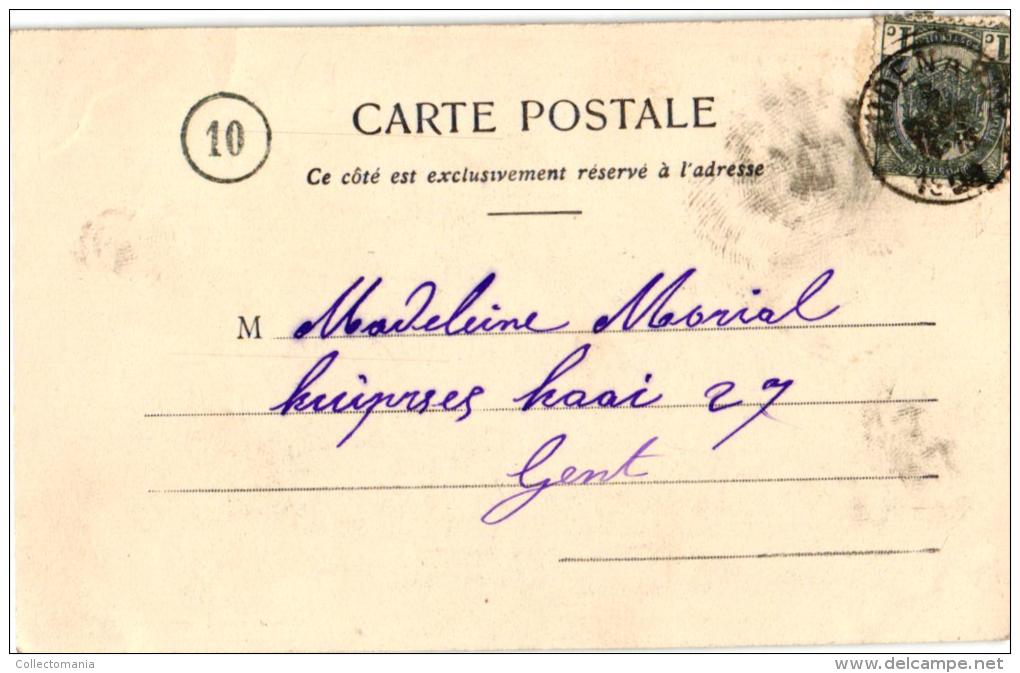 10
CARTE POSTALE
Ce côté est exclusivement réservé à l'adresse
1 c 1 c
M Madeleine Morial
kuiprses kaai 27
Gent
Collectomania
delcampe.net